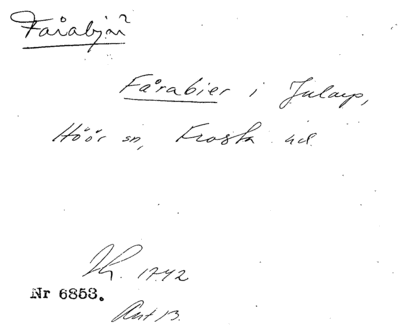 Fårabjär
Fårabier i Jularp,
Höör sn, Frosta hd.
Th. 1742
Nr 6853.
Ant 13.